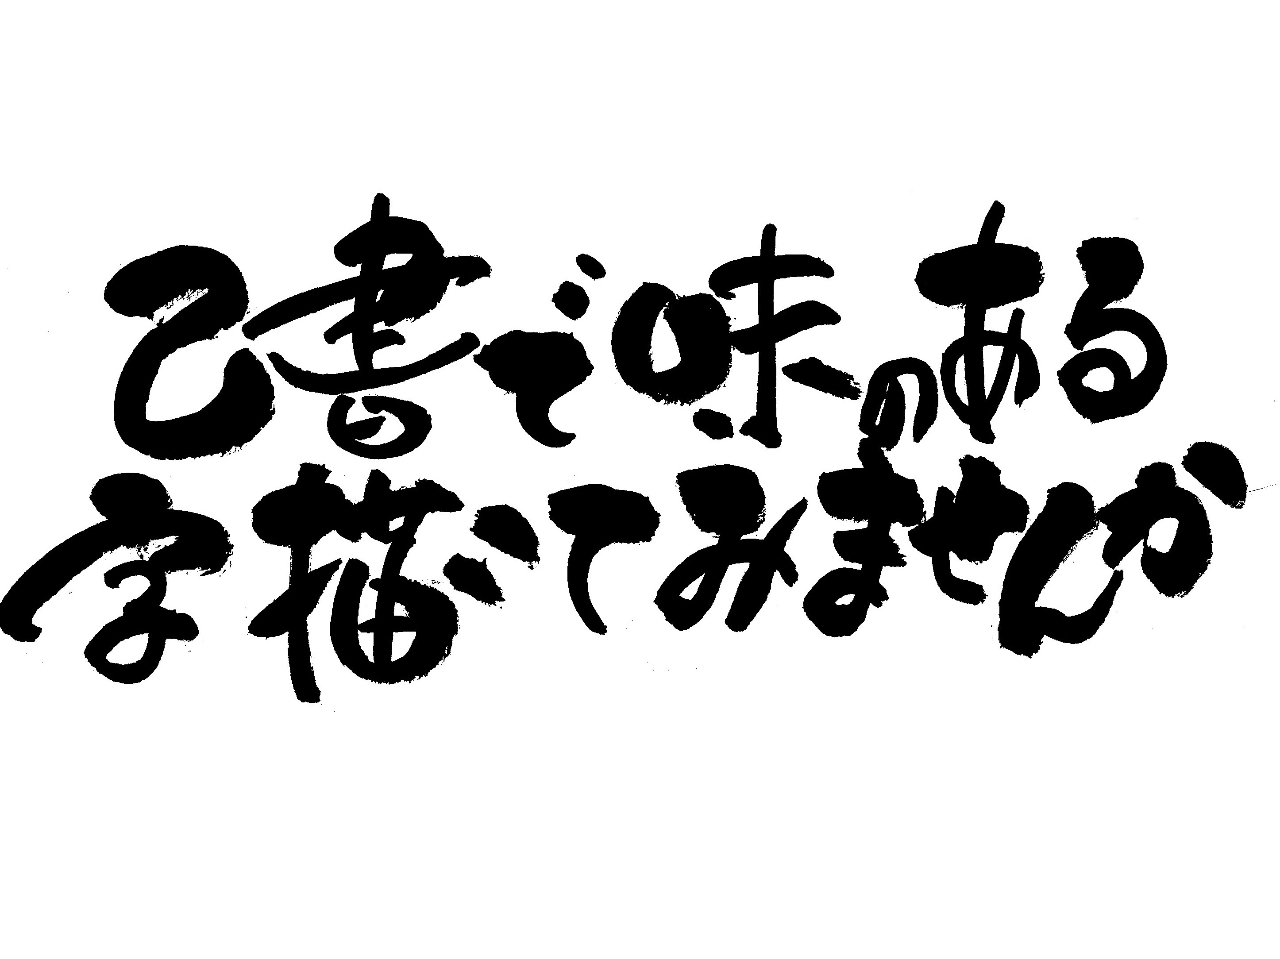 己書で味のある
字描いてみませんか